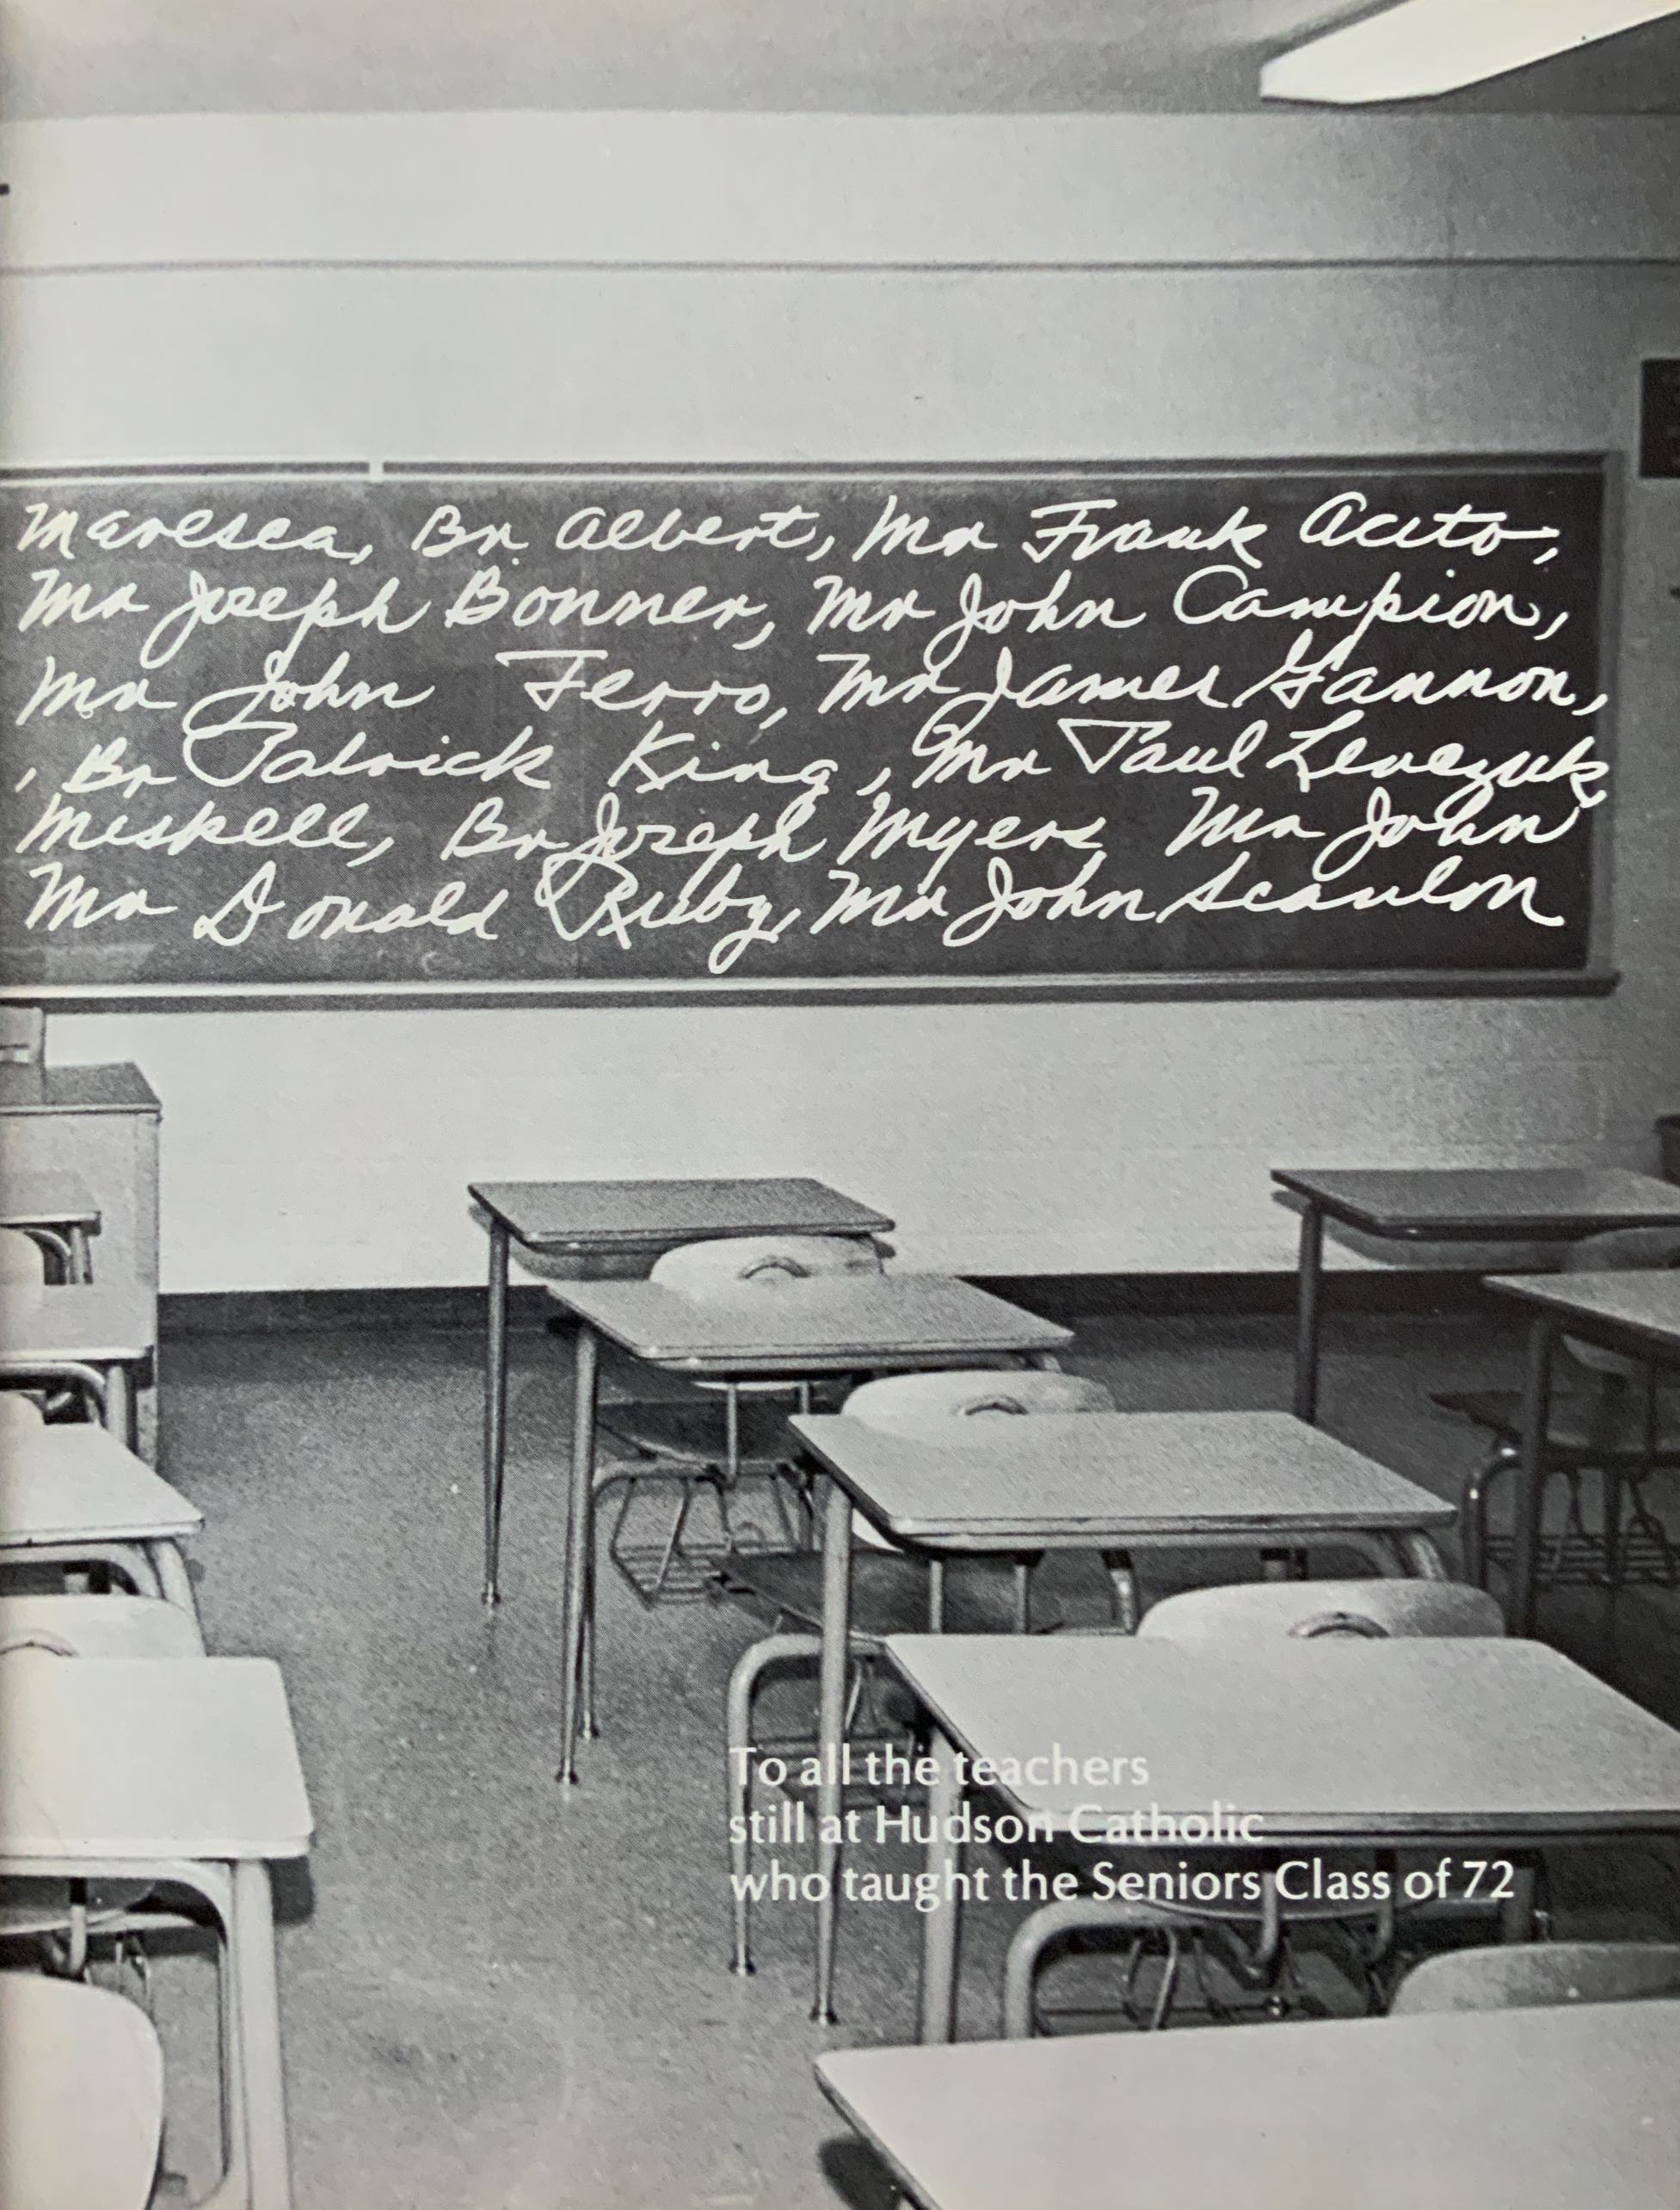 Maresca, Br Albert, Mr Frank Acito,
Mr Joseph Bonner, Mr John Campion,
Mr John Ferro, Mr James Gannon,
, Br Patrick King, Mr Paul Lewczuk
Miskell, Br Joseph Myers Mr John
Mr Donald Ruby, Mr John Scanlon
To all the teachers
still at Hudson Catholic
who taught the Seniors Class of 72